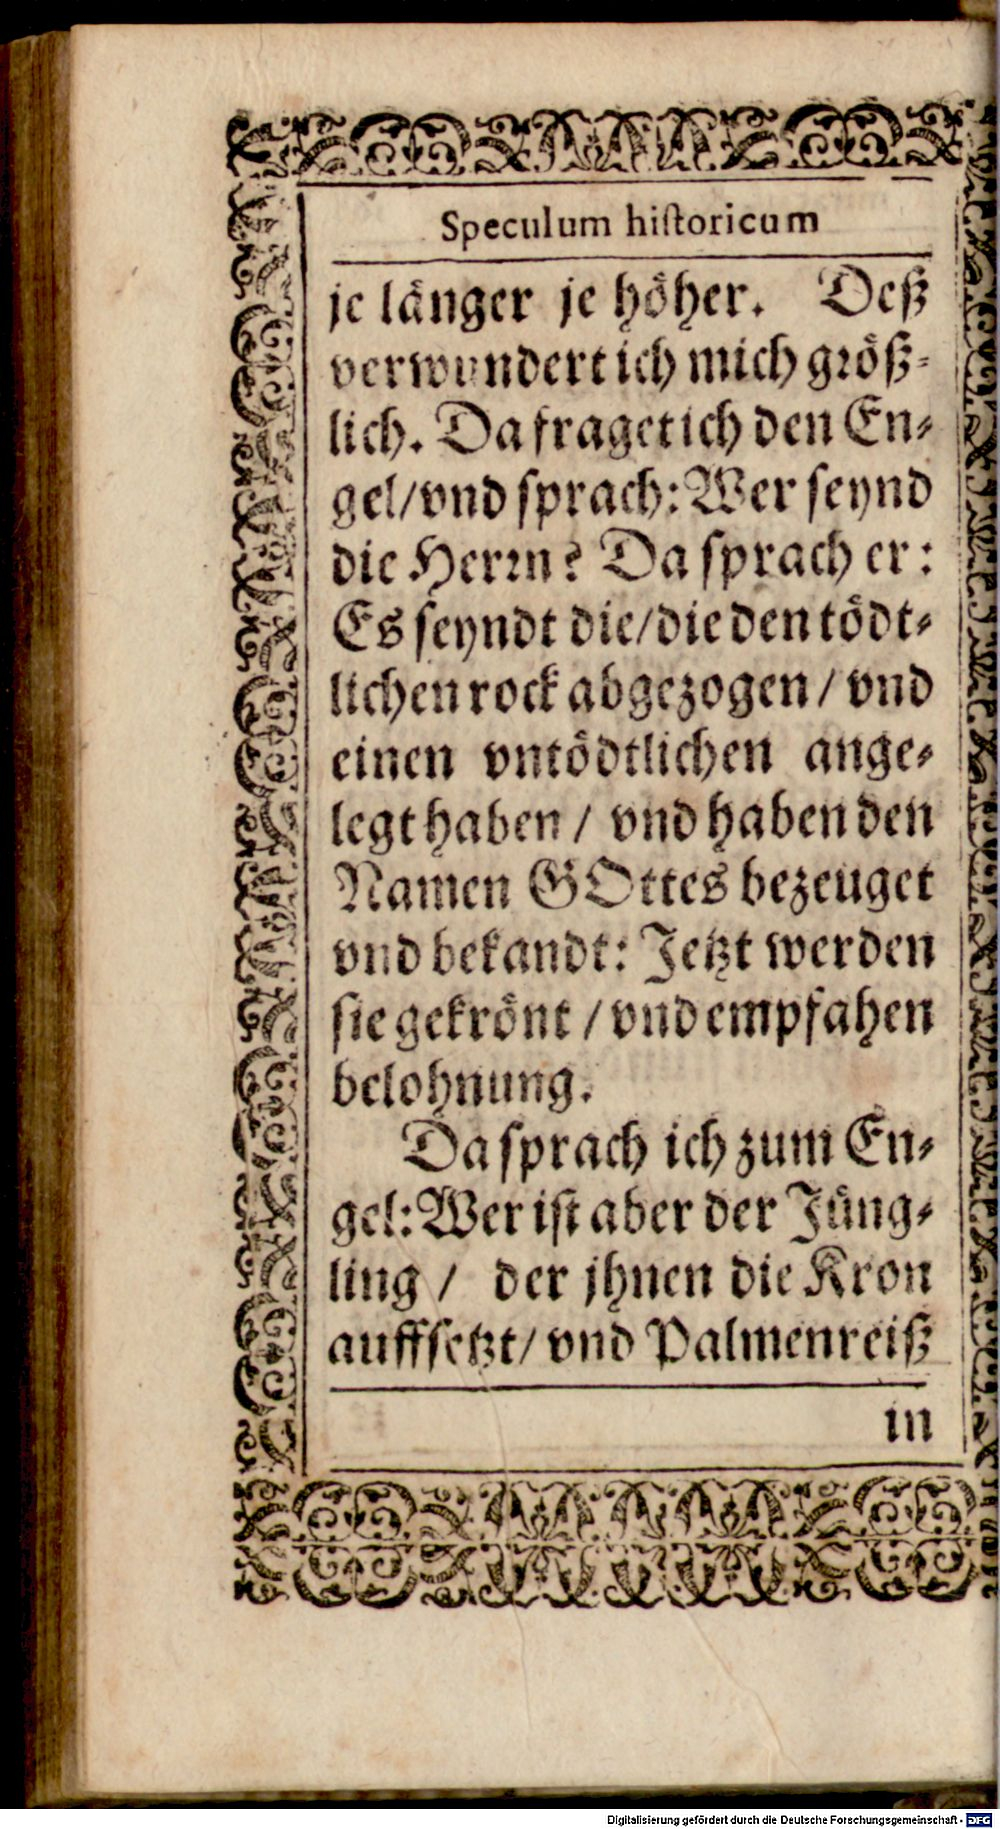 Speculum historicum
je länger je höher. Deß
verwundert ich mich größ-
lich. Da fraget ich den En-
gel/vnd sprach: Wer seynd
die Herrn? Da sprach er:
Es seyndt die/die den tödt-
lichen rock abgezogen/ vnd
einen vntödtlichen ange-
legt haben/ vnd haben den
Namen GOttes bezeuget
vnd bekandt: Jetzt werden
sie gekrönt/ vnd empfahen
belohnung.
Da sprach ich zum En-
gel: Wer ist aber der Jüng-
ling/ der jhnen die Kron
auffsetzt/ vnd Palmenreiß
in
Digitalisierung gefördert durch die Deutsche Forschungsgemeinschaft - DFG